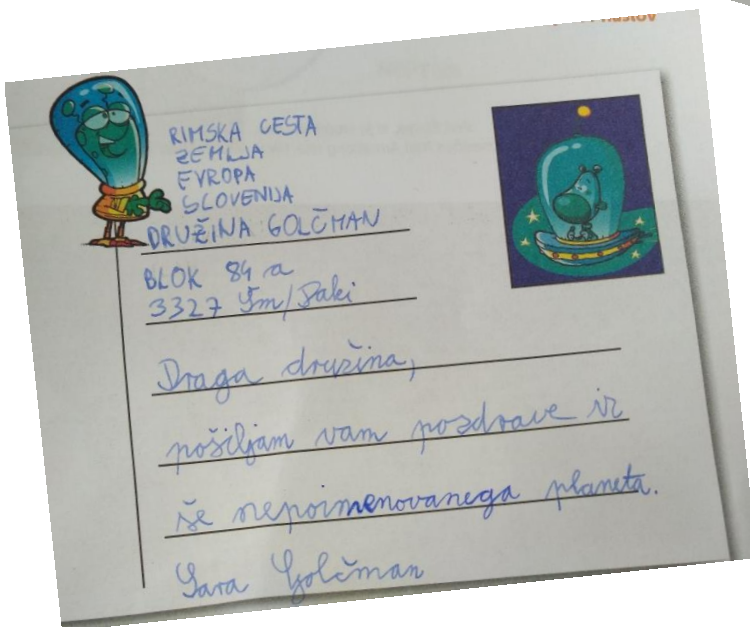 RIMSKA CESTA
ZEMLJA
EVROPA
SLOVENIJA
DRUŽINA GOLČMAN
BLOK 84 a
3327 Šm/Paki
Draga družina,
pošiljam vam pozdrave iz
še nepoimenovanega planeta.
Sara Golčman